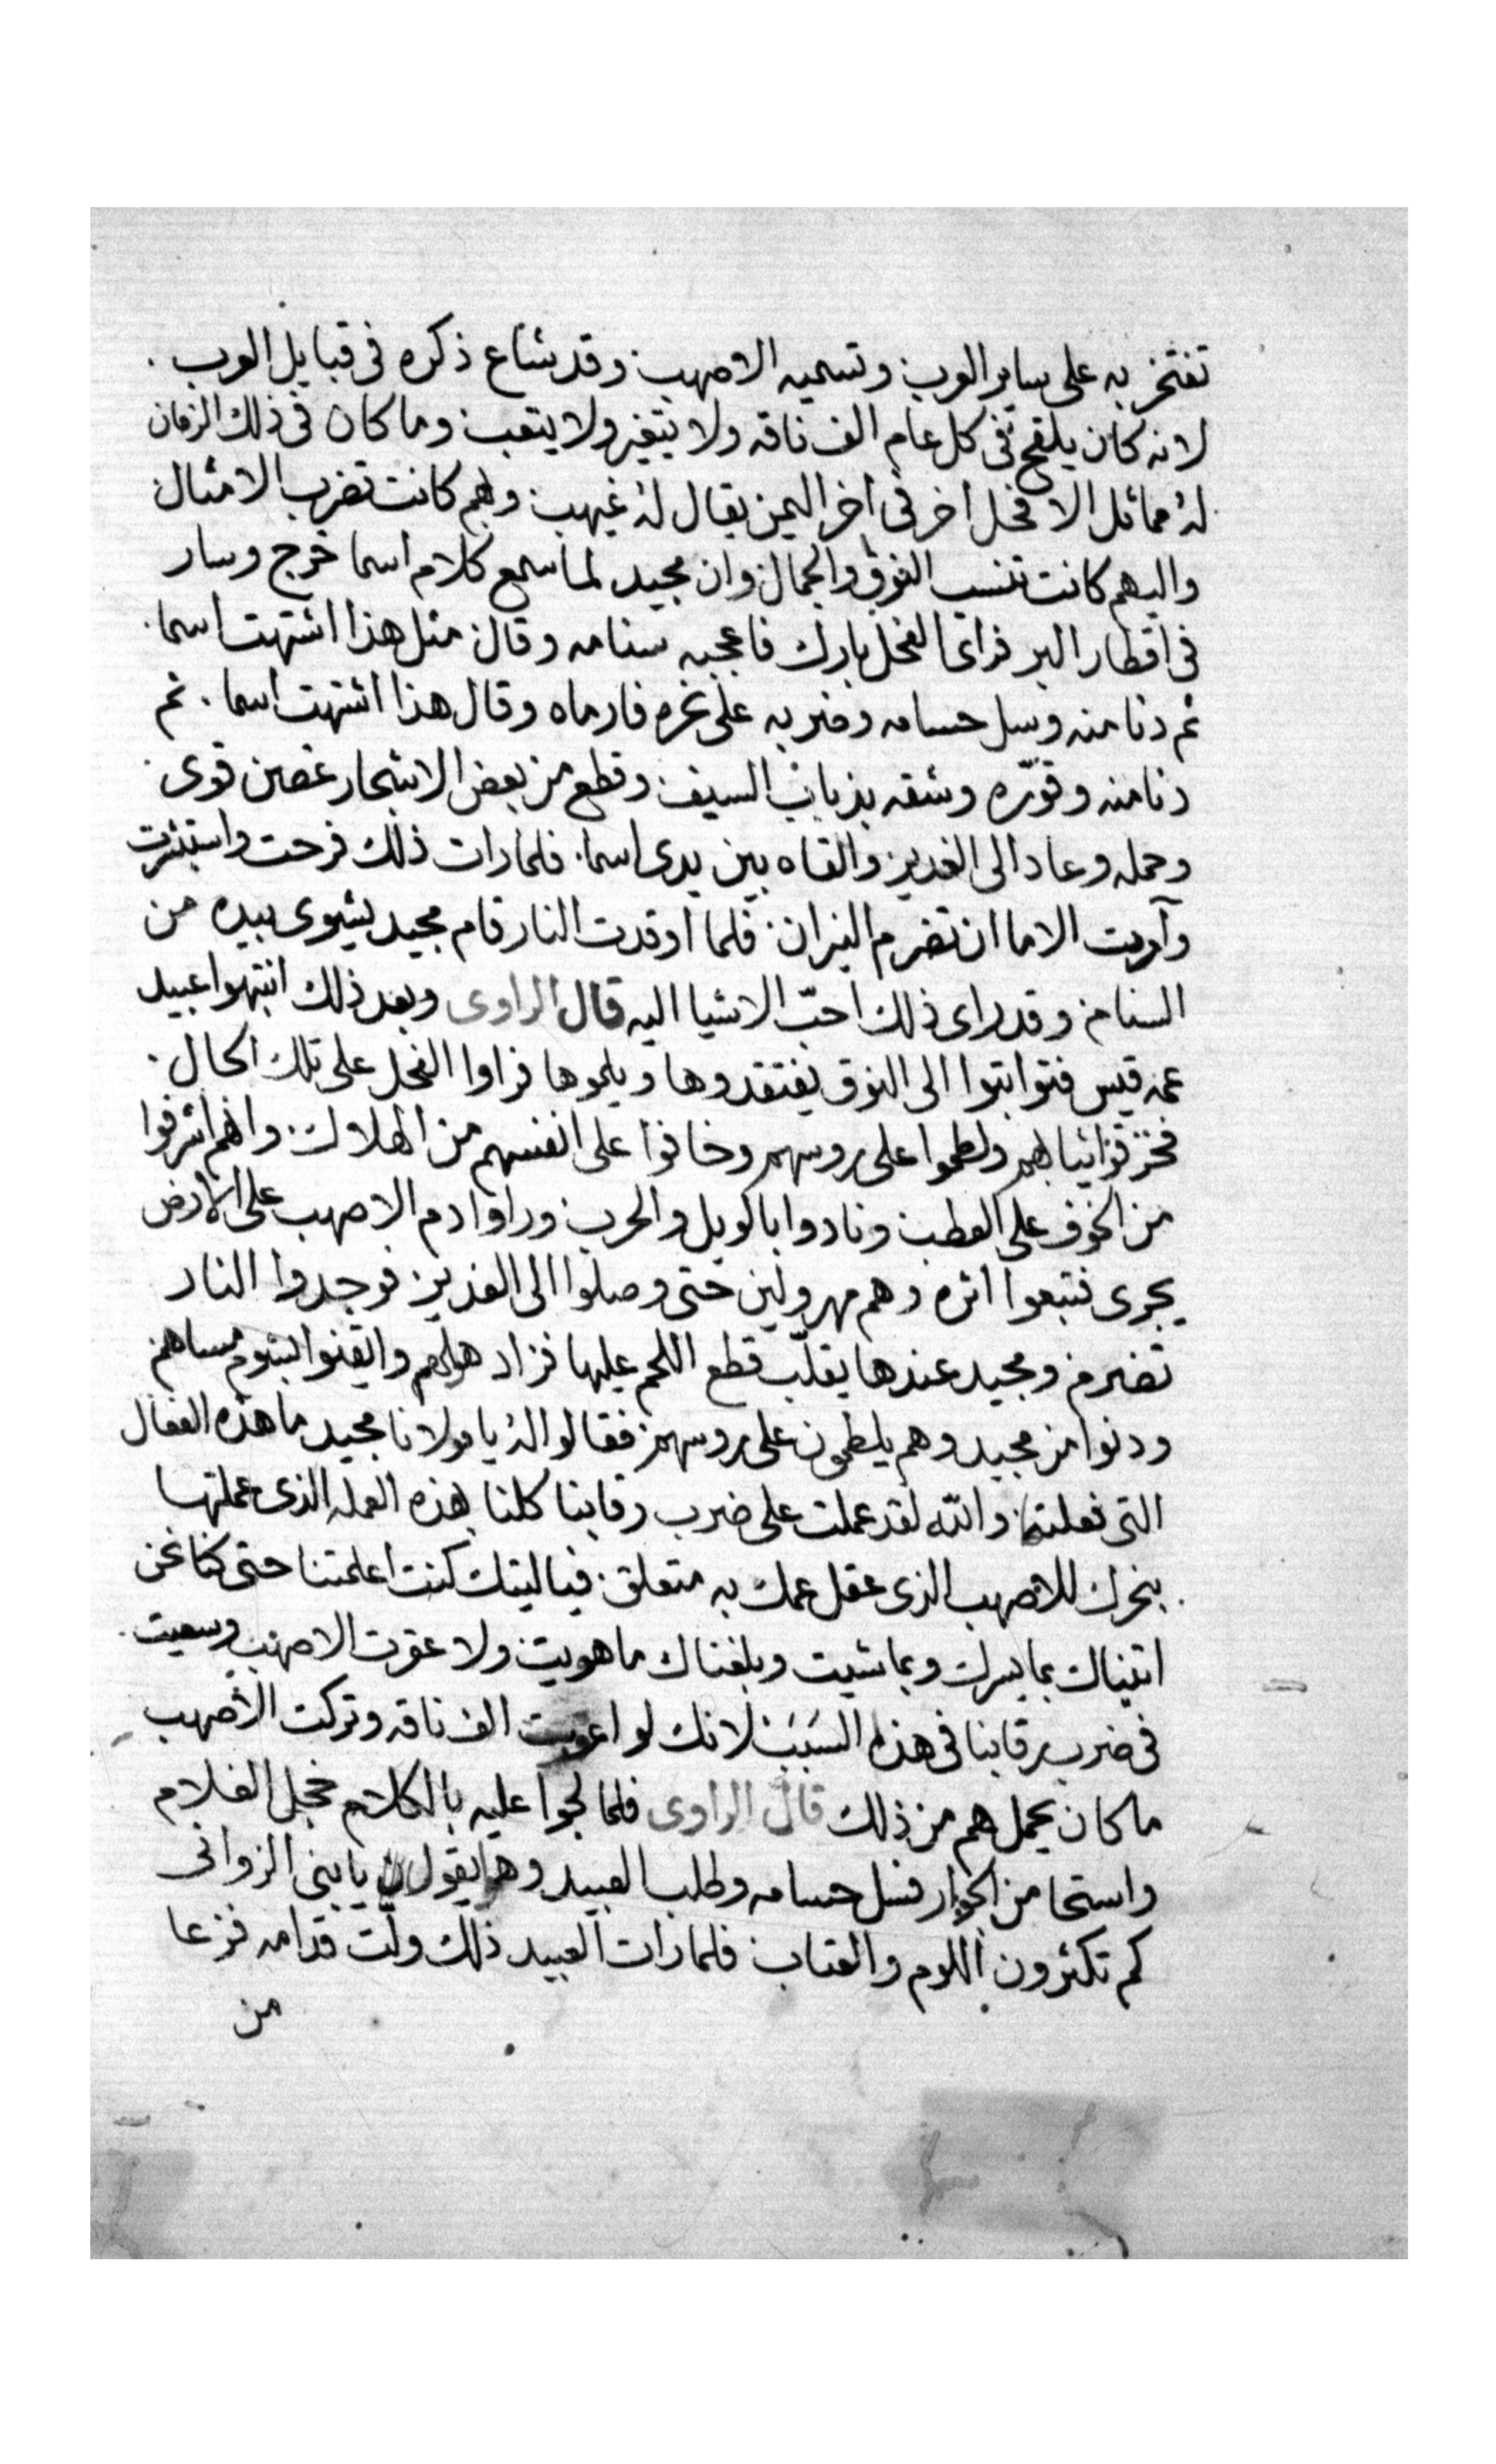 تفتخر به على ساير العرب وتسميه الاصهب وقد شاع ذكره فى قبايل العرب .
لانه كان يلقح فى كل عام الف ناقه ولا يتغير ولا يتعب وما كان فى ذلك الزمان
له مماثل الا فحل اخر فى اخر اليمن يقال له غيهب وبهم كانت تضرب الامثال
واليهم كانت تنسب النوق والجمال وان مجيد لما سمع كلام اسما خرج وسار
فى اقطار البر فراى الفحل بارك فاعجبه سنامه وقال مثل هذا اشتهت اسما .
ثم دنا منه وسل حسامه وضربه على نحره فارماه وقال هذا اشتهت اسما . ثم
دنا منه وقوّره وشقه بذباب السيف وقطع من بعض الاشجار غصين قوى
وحمله وعاد الى الغدير والقاه بين يدى اسما . فلما رات ذلك فرحت واستبشرت
وآمرت الاما ان تضرم النيران . فلما اوقدت النار قام مجيد يشوى بيده من
السنام وقد راى ذلك احبّ الاشيا اليه قال الراوى وبعد ذلك انتبهوا عبيد
عمه قيس فتواثبوا الى النوق يفتقدوها ويلموها فراوا الفحل على تلك الحال .
فخزقوا ثيابهم ولطموا على روسهم وخافوا على انفسهم من الهلاك . وانهم اشرفوا
من الخوف على العطب ونادوا بالويل والحرب وراوا دم الاصهب على الارض
يجرى فتبعوا اثره وهم مهرولين حتى وصلوا الى الغدير فوجدوا النار
تضرم ومجيد عندها يقلّب قطع اللحم عليها فزاد هلعهم وايقنوا بشوم مساهم
ودنوا من مجيد وهم يلطمون على روسهم فقالوا له يا مولانا مجيد ما هذه الفعال
التى فعلتها والله لقد عملت على ضرب رقابنا كلنا بهذه العمله الذى عملتها
بنحرك للاصهب الذى عقل عمك به متعلق . فياليتك كنت اعلمتنا حتى كنا نحن
اتيناك بما يسرك وبما شيت وبلغناك ما هويت ولا عقرت الاصهب وسعيت .
فى ضرب رقابنا فى هذا السَبَب لانك لو الف ناقه وتركت الاصهب
ما كان يحمل هم من ذلك قال الراوى فلما لجوا عليه بالكلام خجل الغلام
واستحا من الجوار فسل حسامه وطلب العبيد وهو يقول يا بنى الزوانى
كم تكثرون اللوم والعتاب فلما رات العبيد ذلك ولّت قدامه فزعا
من